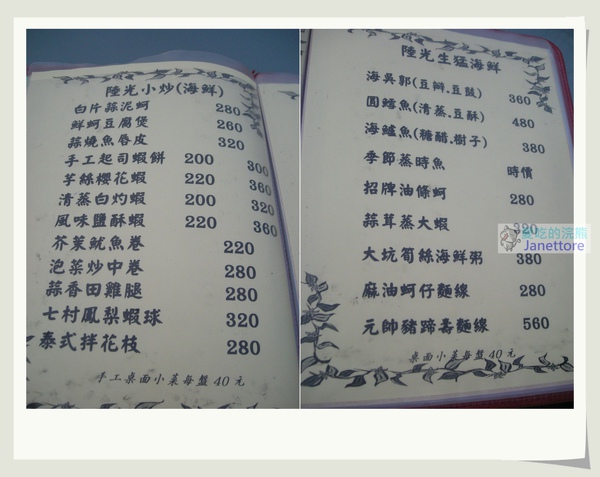 陸光小炒(海鮮)
白片蒜泥蚵 280
鮮蚵豆腐煲 260
蒜燒魚唇皮 320
手工起司蝦餅 200 300
芋絲櫻花蝦 220 360
清蒸白灼蝦 200 320
風味鹽酥蝦 220 360
芥菜魷魚卷 220
泡菜炒中卷 280
蒜香田雞腿 280
七村鳳梨蝦球 320
泰式拌花枝 280
手工桌面小菜每盤40元
陸光生猛海鮮
海吳郭(豆瓣.豆豉) 360
圓鱈魚(清蒸.豆酥) 480
海鱸魚(糖醋.樹子) 380
季節蒸時魚 時價
招牌油條蚵 280
蒜茸蒸大蝦 320
大坑筍絲海鮮粥 380
麻油蚵仔麵線 280
元帥豬蹄壽麵線 560
桌面小菜每盤40元
愛吃的浣熊
Janettore